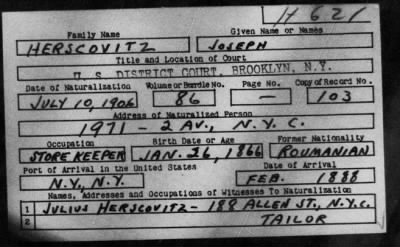 H 621
Family Name Given Name or Names
HERSCOVITZ JOSEPH
Title and Location of Court
U. S. DISTRICT COURT, BROOKLYN, N.Y.
Date of Naturalization Volume or Bundle No. Page No. Copy of Record No.
JULY 10, 1906 86 — 103
Address of Naturalized Person
1971 - 2 AV., N.Y.C.
Occupation Birth Date or Age Former Nationality
STORE KEEPER JAN. 26, 1866 ROUMANIAN
Port of Arrival in the United States Date of Arrival
N.Y., N.Y. FEB. 1888
Names, Addresses and Occupations of Witnesses To Naturalization
1 JULIUS HERSCOVITZ - 188 ALLEN ST., N.Y.C.
2 TAILOR